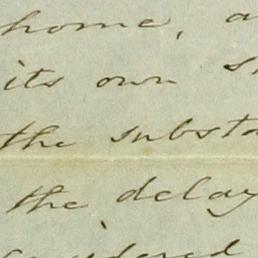 home, a
its own s
the substa
the delay